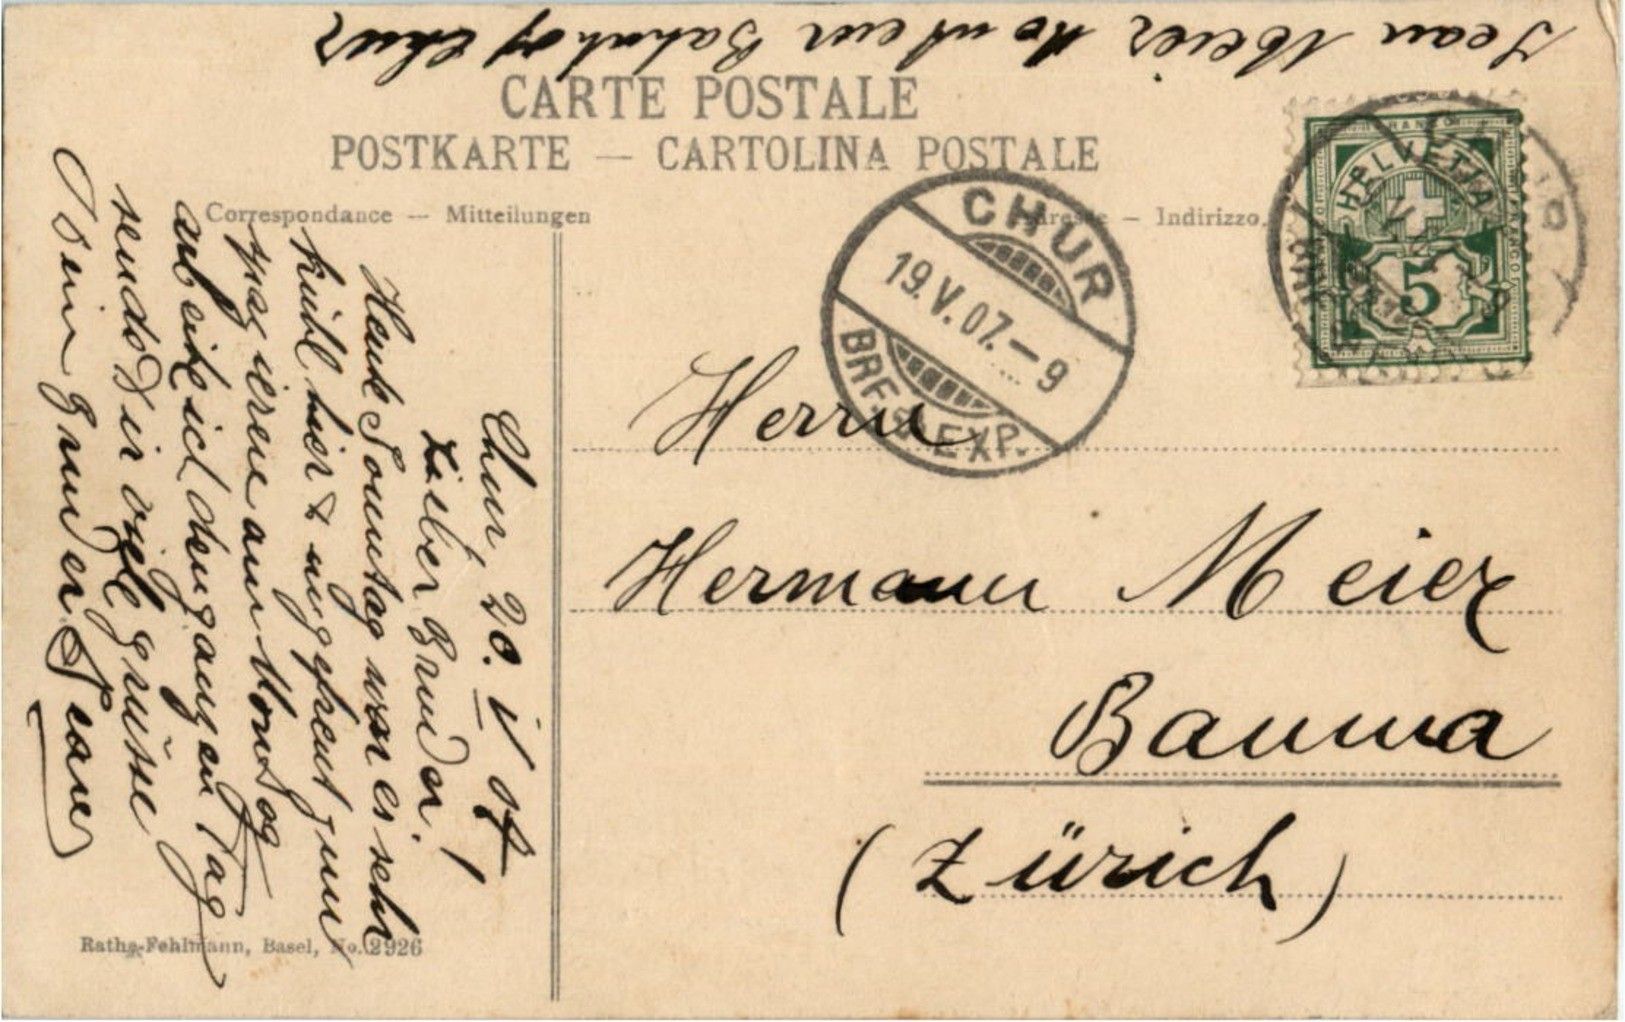 Jean Meier Monteur Bahnhof Chur
CARTE POSTALE
POSTKARTE — CARTOLINA POSTALE
Correspondance — Mitteilungen
Adresse — Indirizzo.
CHUR
19.V.07.–9
BRF. EXP.
HELVETIA
FRANCO
5
Herrn
Hermann Meier
Bauma
(Zürich)
Chur, 20.
Lieber Bruder!
Heute Sonntag war es sehr
kühl hier & ungefreut zum
spazieren am Montag
arbeite ich den ganzen Tag
sende Dir viele Grüsse
Dein Bruder Jean
Rathe-Fehlmann, Basel, No. 2926